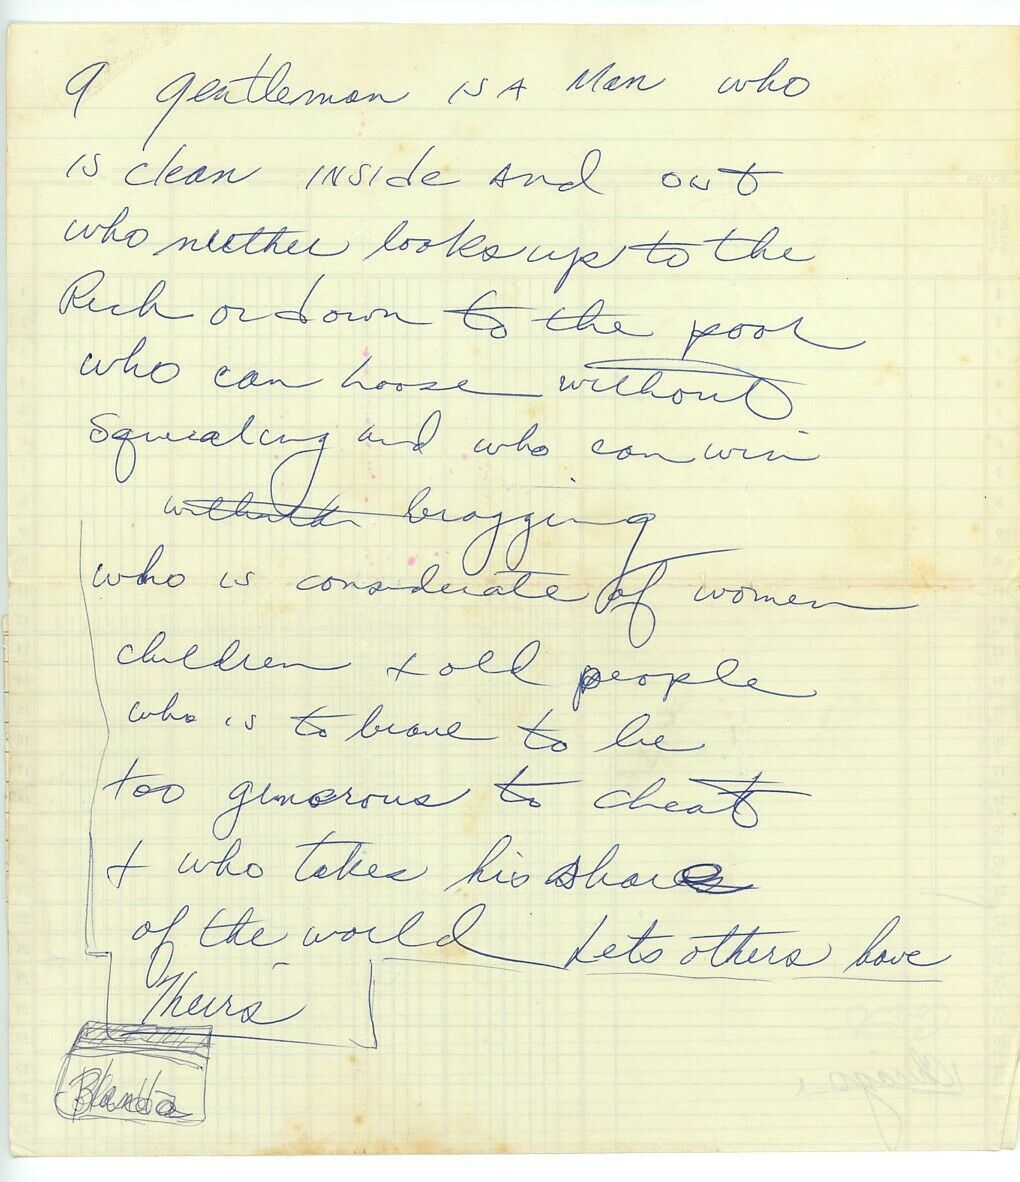 A gentleman is A Man who
is clean INSIde and out
who neither looks up to the
Rich or down to the poor
who can loose without
Squealing and who can win
without bragging
who is considerate of women
children + old people
who is to brave to lie
too generous to cheat
+ who takes his share
of the world Lets others have
Theirs
Chicago